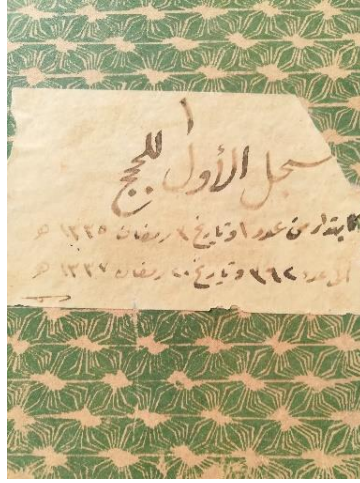 ١
سجل الأول للحجج
ابتداء من عدد ١ وتاريخ ٩ رمضان ١٣٣٥ ھ
الى عدد ٩٦٢ وتاريخ ٢٠ رمضان ١٣٣٧ ھ